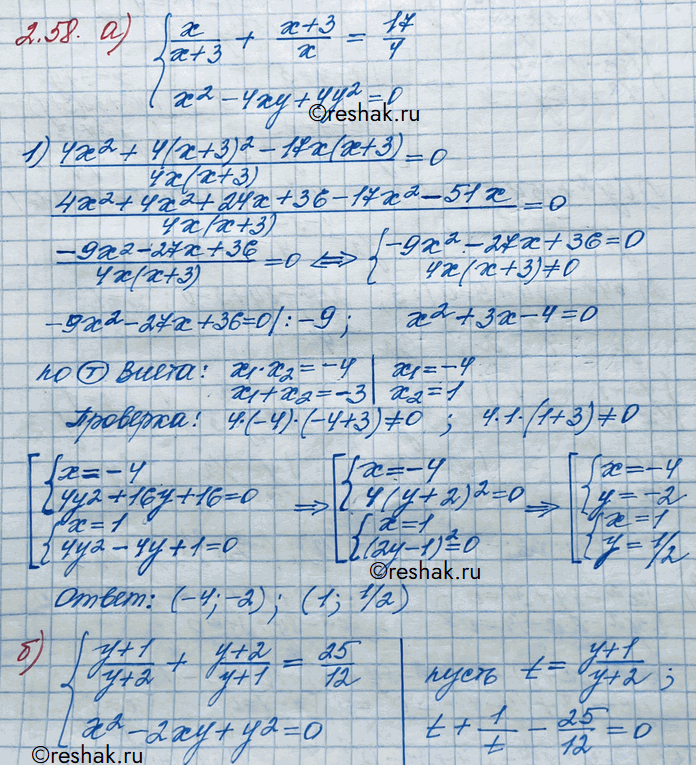 2.58. а) { x/(x+3) + (x+3)/x = 17/4
x² - 4xy + 4y² = 0
©reshak.ru
1) (4x² + 4(x+3)² - 17x(x+3))/(4x(x+3)) = 0
(4x² + 4x² + 24x + 36 - 17x² - 51x)/(4x(x+3)) = 0
(-9x² - 27x + 36)/(4x(x+3)) = 0 <=> { -9x² - 27x + 36 = 0
4x(x+3) ≠ 0
-9x² - 27x + 36 = 0 | : -9 ; x² + 3x - 4 = 0
по Ⓣ Виета: x₁·x₂ = -4 | x₁ = -4
x₁ + x₂ = -3 | x₂ = 1
Проверка: 4·(-4)·(-4+3) ≠ 0 ; 4·1·(1+3) ≠ 0
[ { x = -4 => [ { x = -4 => [ { x = -4
4y2 + 16y + 16 = 0 4(y+2)² = 0 y = -2
{ x = 1 { x = 1 { x = 1
4y2 - 4y + 1 = 0 (2y-1)² = 0 y = 1/2
©reshak.ru
Ответ: (-4; -2); (1; 1/2)
б) { (y+1)/(y+2) + (y+2)/(y+1) = 25/12 | пусть t = (y+1)/(y+2);
x² - 2xy + y² = 0 | t + 1/t - 25/12 = 0
©reshak.ru